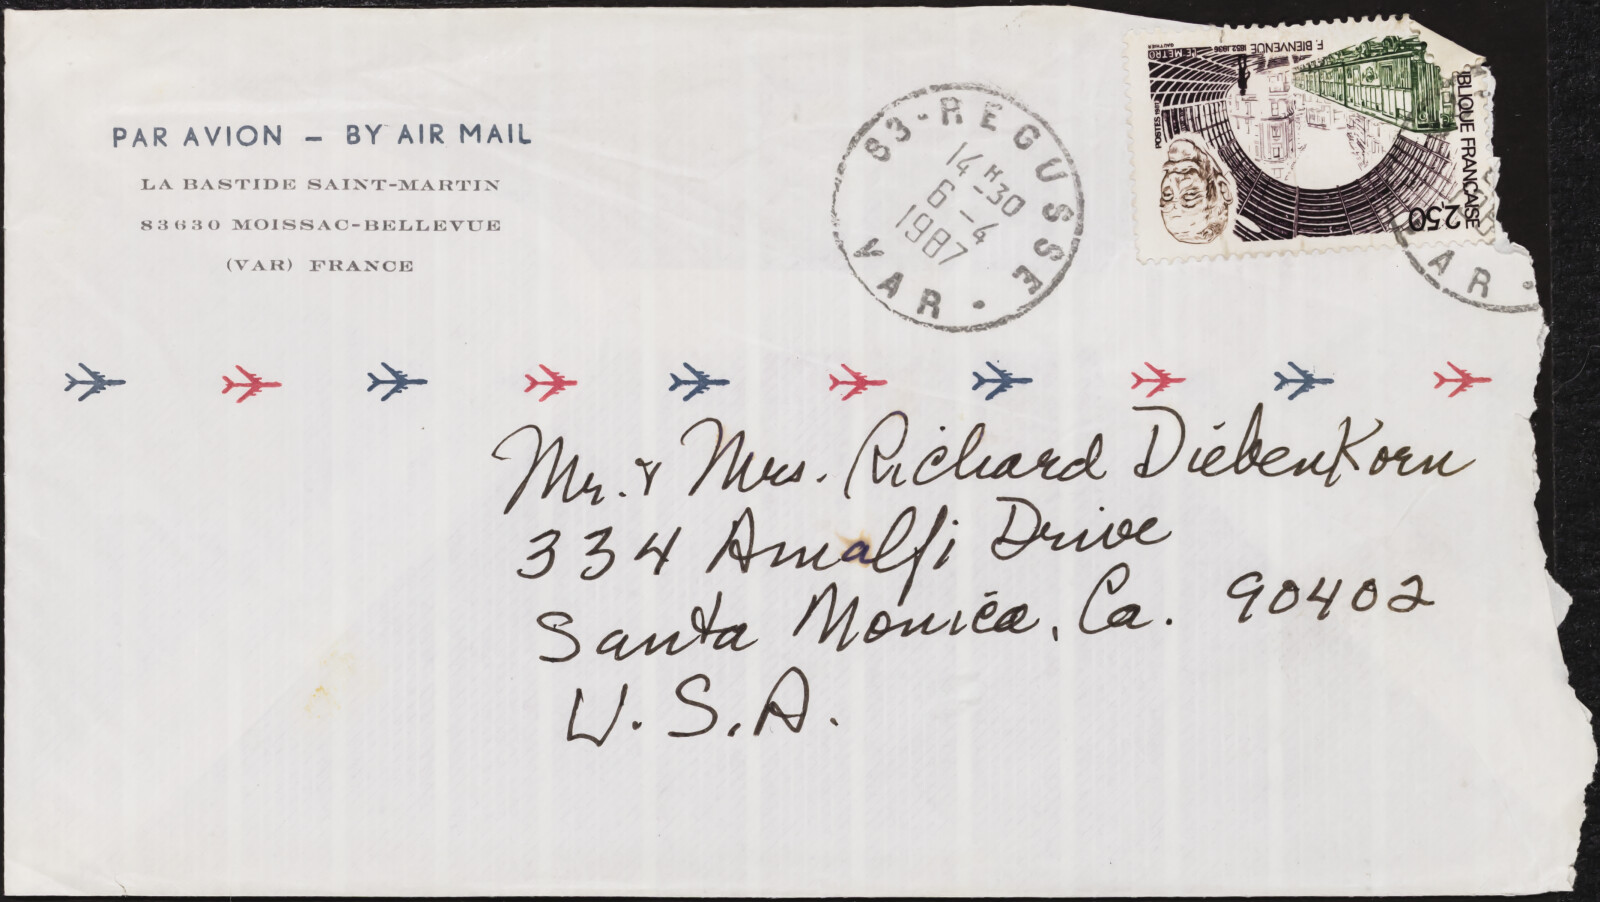 PAR AVION – BY AIR MAIL
LA BASTIDE SAINT-MARTIN
83630 MOISSAC-BELLEVUE
(VAR) FRANCE
83-REGUSSE
14H30
6-4
1987
VAR
LE METRO F. BIENVENÜE 1852.1936
GAUTHIER
POSTES 1987
BLIQUE FRANÇAISE
2,50
AR
Mr. & Mrs. Richard Diebenkorn
334 Amalfi Drive
Santa Monica, Ca. 90402
U.S.A.